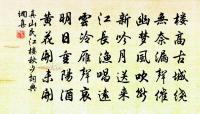 樓高古城
幽夢風吹
新吟月送來
江長漁唱遠
雲冷雁聲哀
明日重陽酒
黃花開未開
真山民江樓秋夕